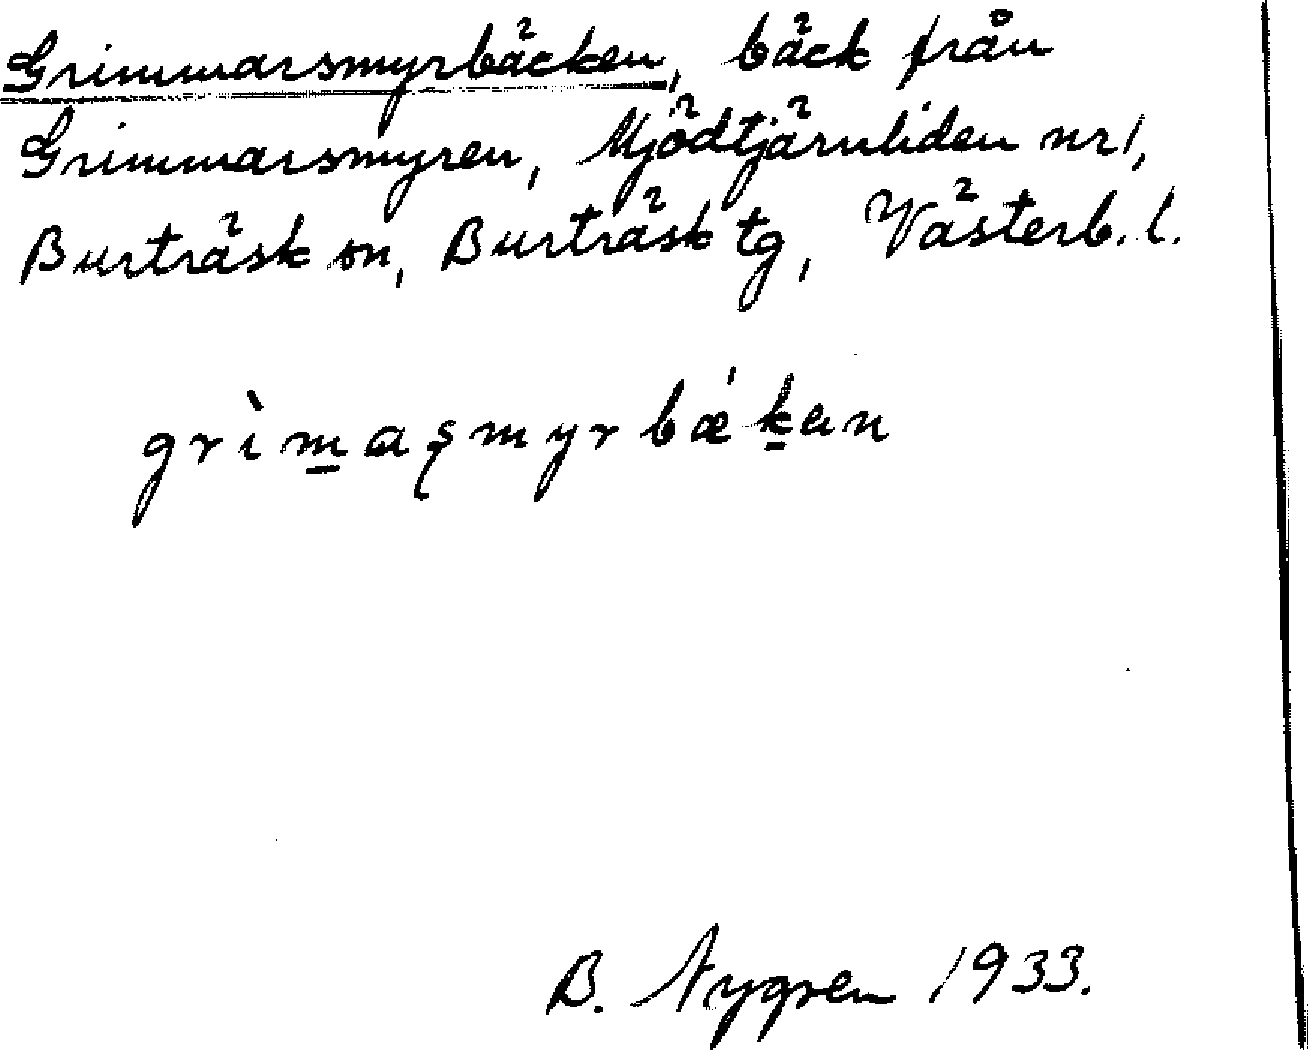 Grimmarsmyrbäcken, bäck från
Grimmarsmyren, Mjödtjärnliden nr 1,
Burträsk sn, Burträsk tg, Västerb. l.
grìm̲aʂmyrbǽk̲an
B. Nygren 1933.